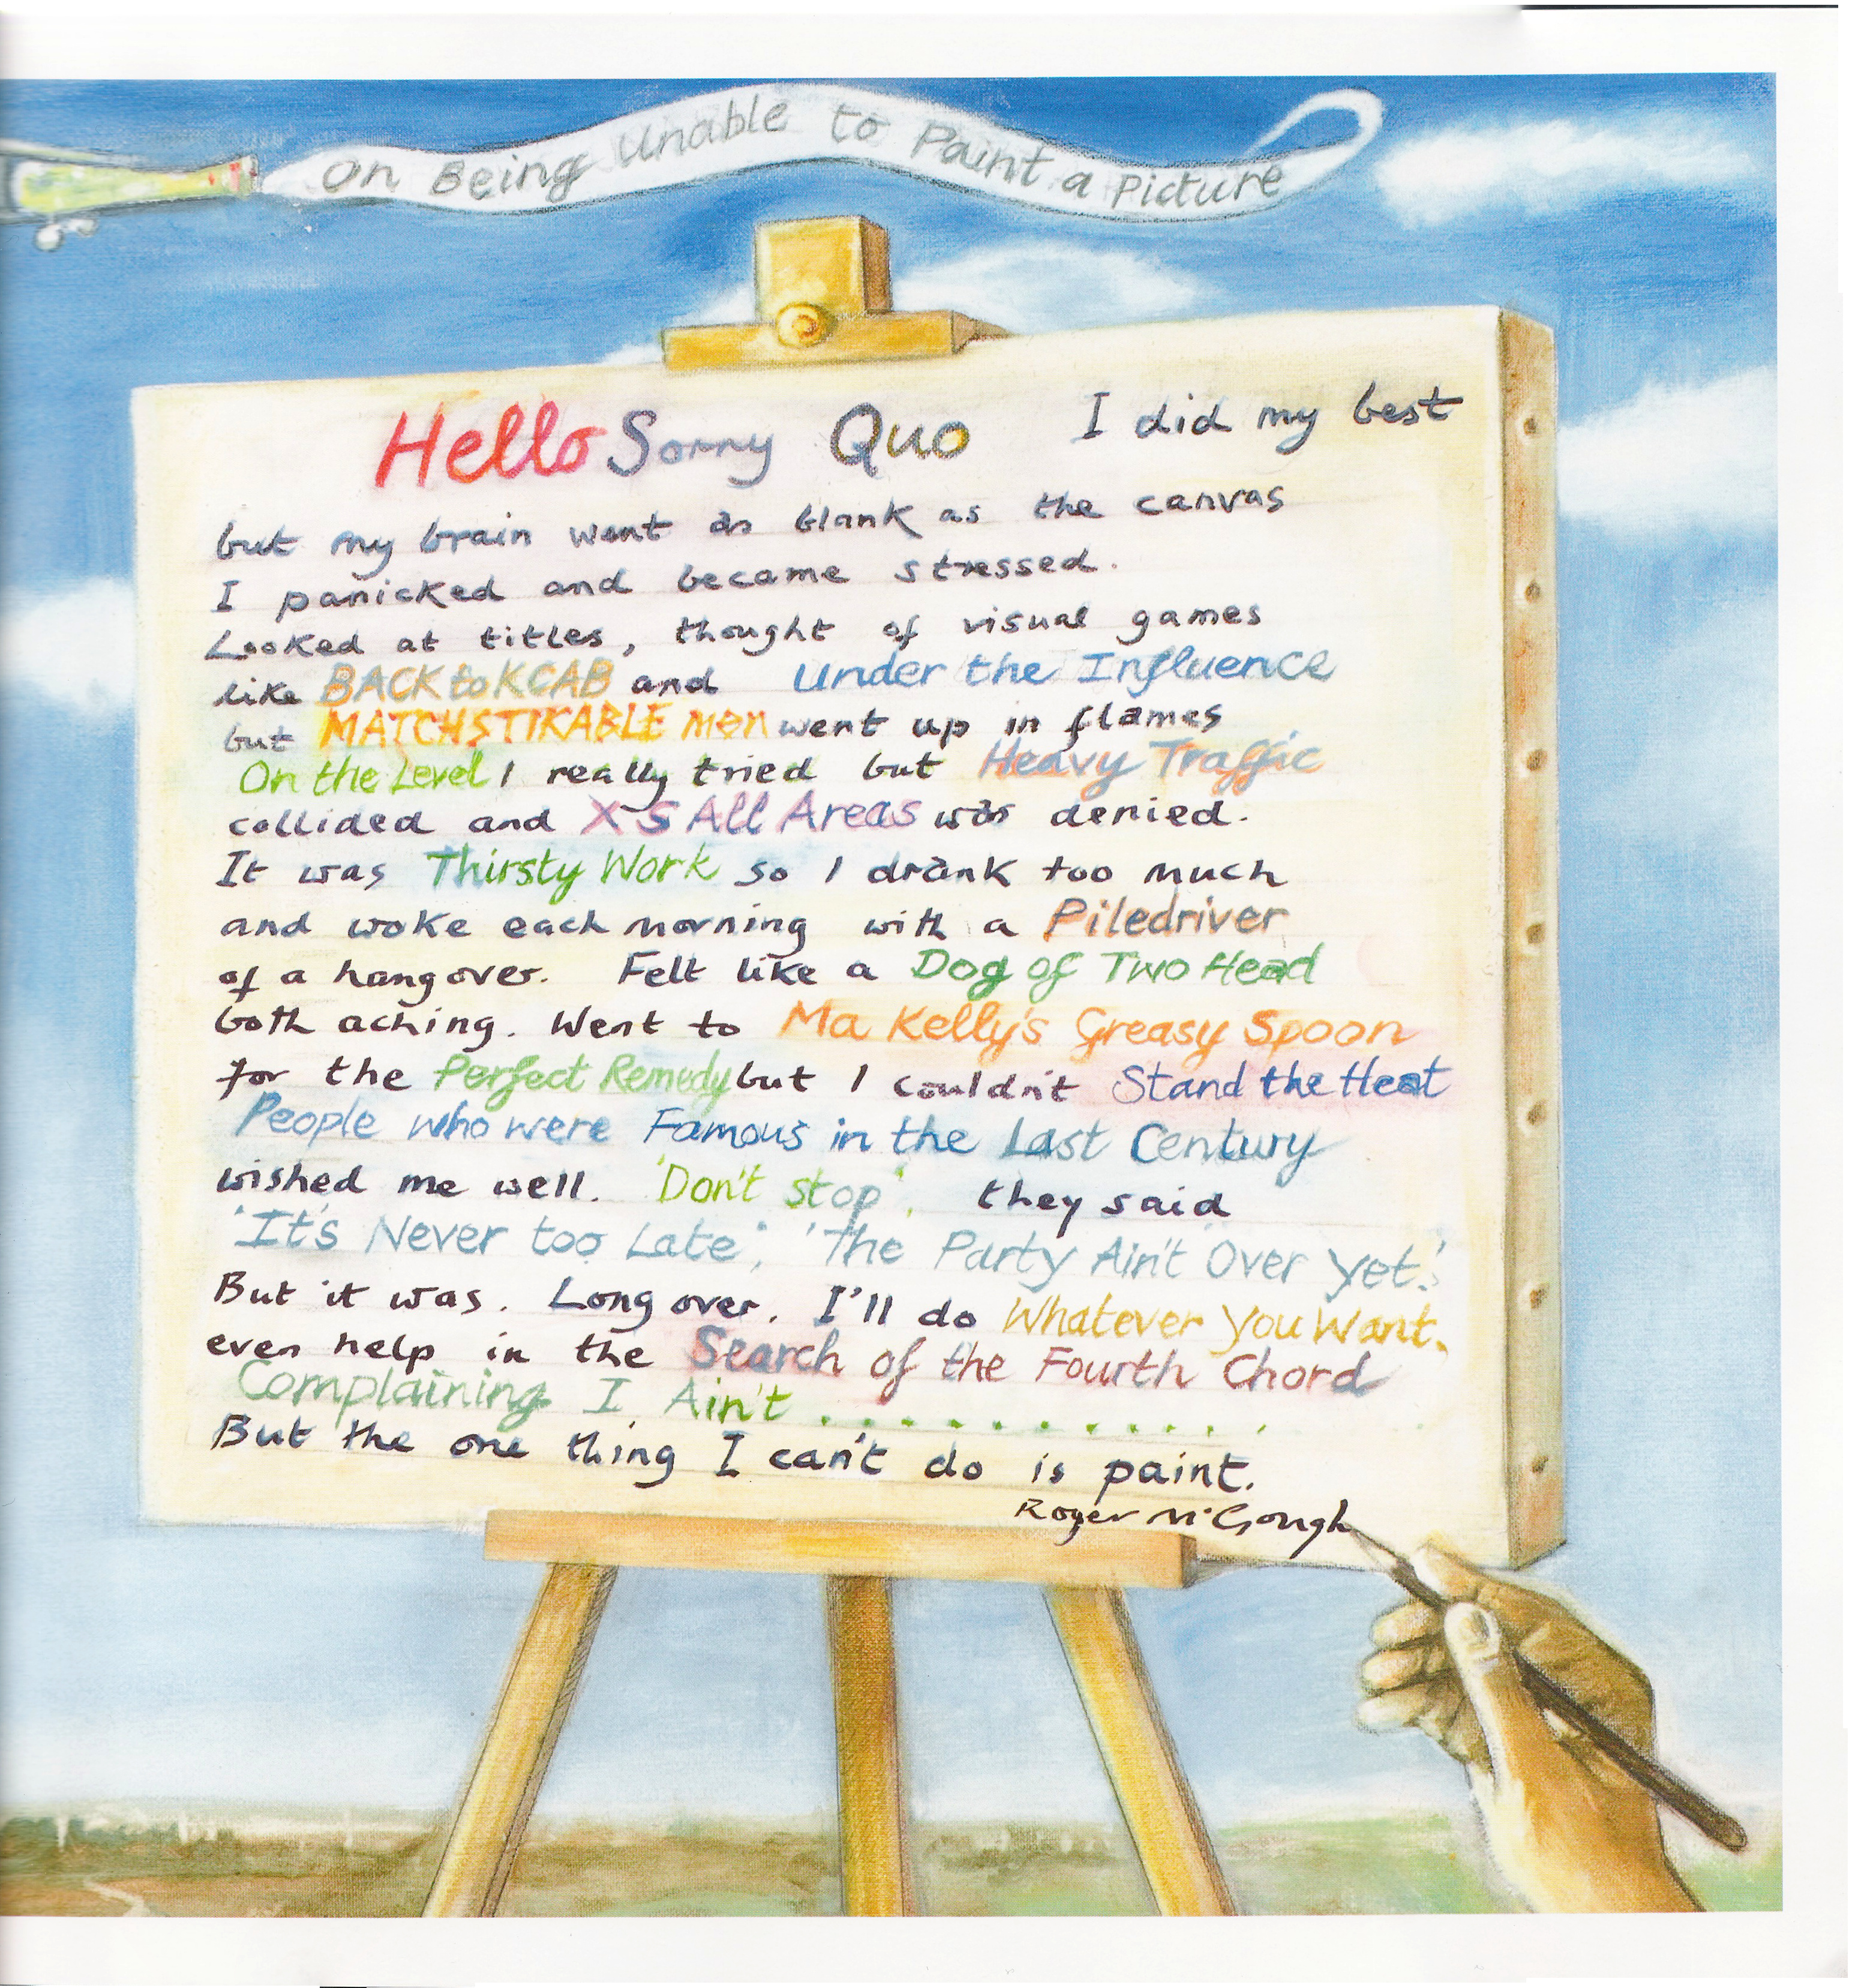 On Being Unable to Paint a Picture
Hello Sorry Quo I did my best
but my brain went as blank as the canvas
I panicked and became stressed.
Looked at titles, thought of visual games
like BACK to KCAB and Under the Influence
but MATCHSTIKABLE men went up in flames
On the Level I really tried but Heavy Traffic
collided and XS All Areas was denied.
It was Thirsty Work so I drank too much
and woke each morning with a Piledriver
of a hangover. Felt like a Dog of Two Head
both aching. Went to Ma Kelly's Greasy Spoon
for the Perfect Remedy but I couldn't Stand the Heat
People who were Famous in the Last Century
wished me well. 'Don't stop', they said
'It's Never too Late', 'The Party Ain't Over Yet.'
But it was. Long over. I'll do Whatever You Want.
even help in the Search of the Fourth Chord
Complaining I Ain't . . . . . . . . . . . .
But the one thing I can't do is paint.
Roger McGough